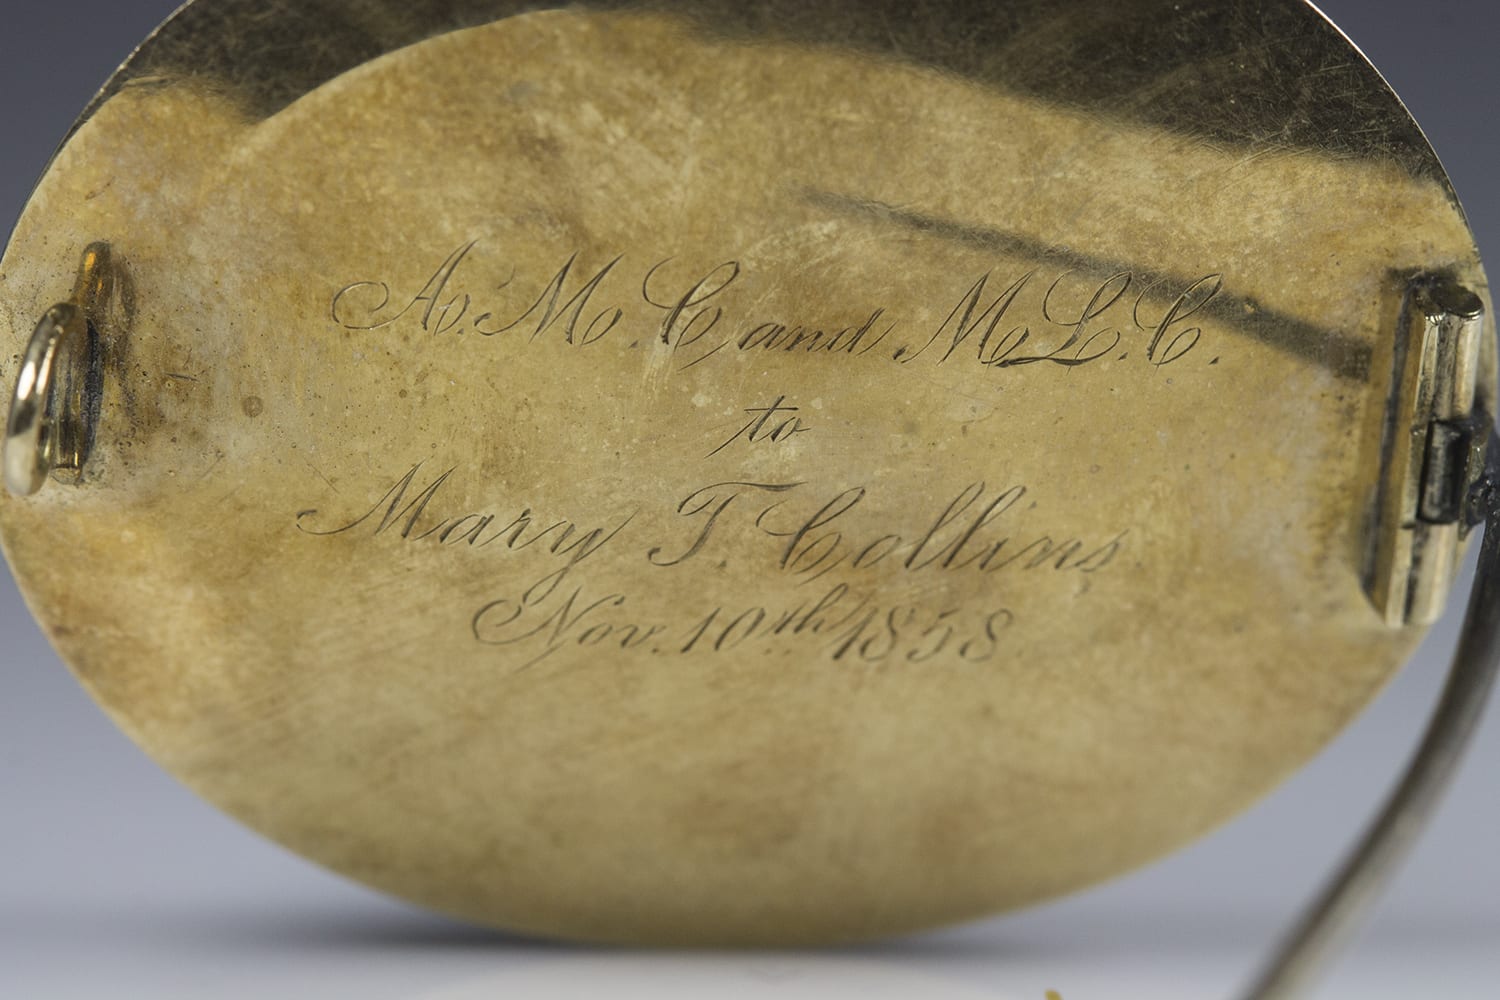 A. M. C. and M. L. C.
to
Mary T. Collins
Nov. 10th 1858.